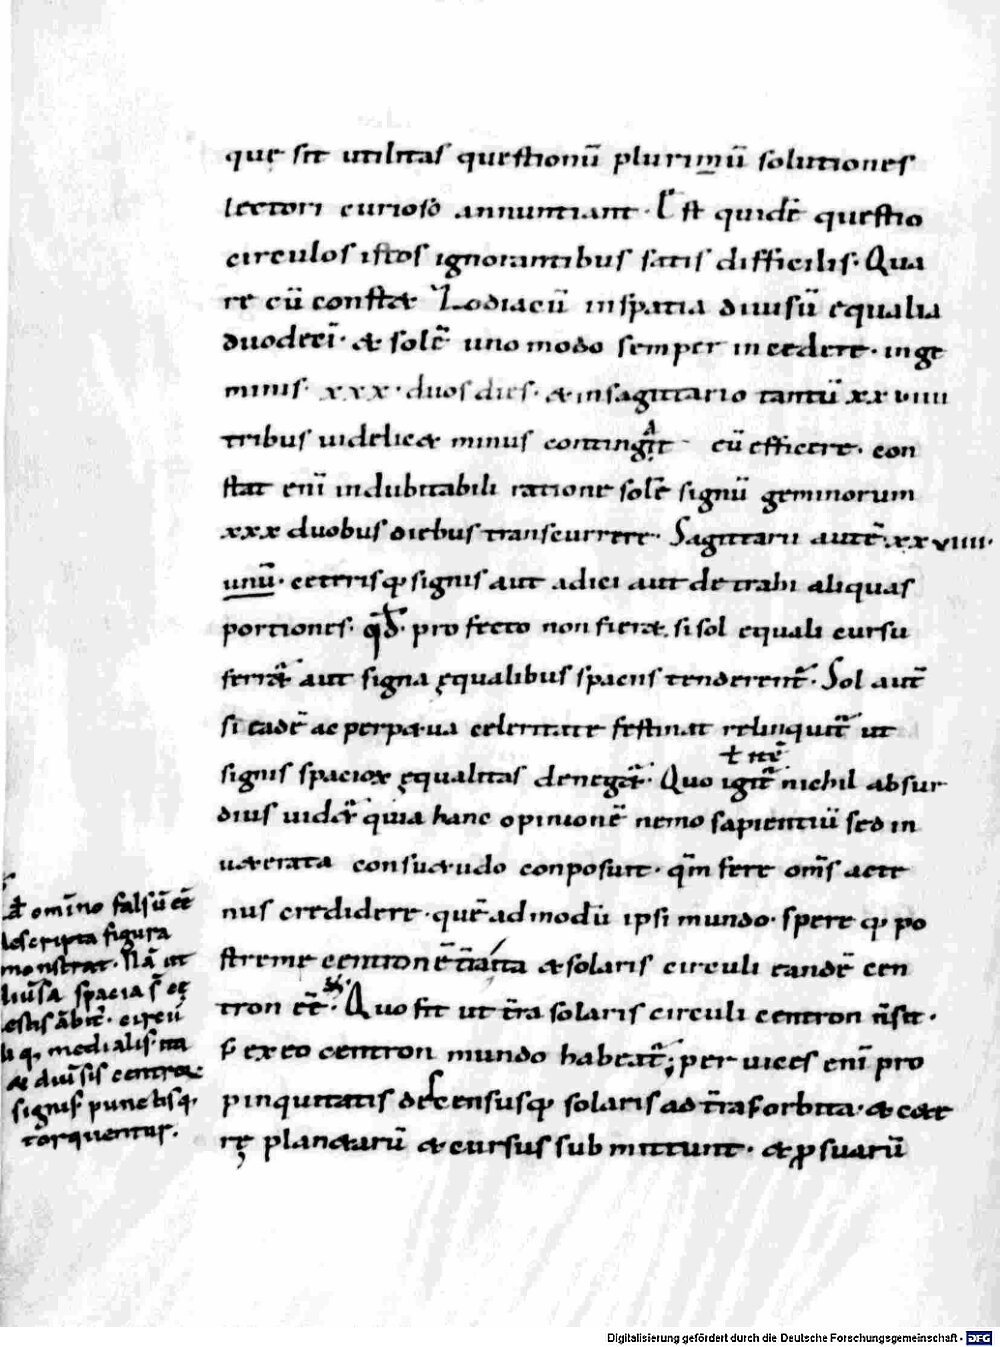 quę sit utilitas questionū plurimū solutiones
lectori curioso annuntiant. Est quidē questio
circulos istos ignorantibus satis difficilis. Qua
re cū constet Zodiacū in spatia diuisū equalia
duodecī. & solē uno modo semper incedere. in ge
minis. xxx. duos dies. & in sagittario tantū xxviiii
tribus uidelicet minus contingit cū efficere. con
stat enī indubitabili ratione solē signū geminorum
xxx duobus diebus transcurrere. Sagittarii autē. xxviiii.
unū. ceterisq; signis aut adici aut detrahi aliquas
portiones. qđ. profecto non fieret. si sol equali cursu
ferret̄ aut signa ęqualibus spaciis tenderent̄. Sol aut̄
si eadē ac perpetua celeritate festinat relinquit̄ ut
ł nē
signis spacioꝝ ęqualitas deneget̄. Quo igit̄ nichil absur
dius uidet̄ quia hanc opinionē nemo sapientiū sed in
ueterata consuetudo conposuit. qm̄ fere om̄s aeter
nus credidere. quē ad modū ipsi mundo. sperę q; po
streme centron ē t̄ra ita & solaris circuli eandē cen
tron ēē. Quo fit ut t̄ra solaris circuli centron n̄ sit.
s; ex eo centron mundo habeat̄; per uices enī pro
pinquitatis descensusq; solaris ad t̄ras orbita. & cete
rę planetarū & cursus submittunt. & ꝓ suarū
omīno falsū ēē
descripta figura
monstrat. Nā ut
diūsa spacia s̄ cę
lestis āb̄it. circū
li q; medialis ita
ac diūsis centroꝝ
signis punctisq;
torquentur.